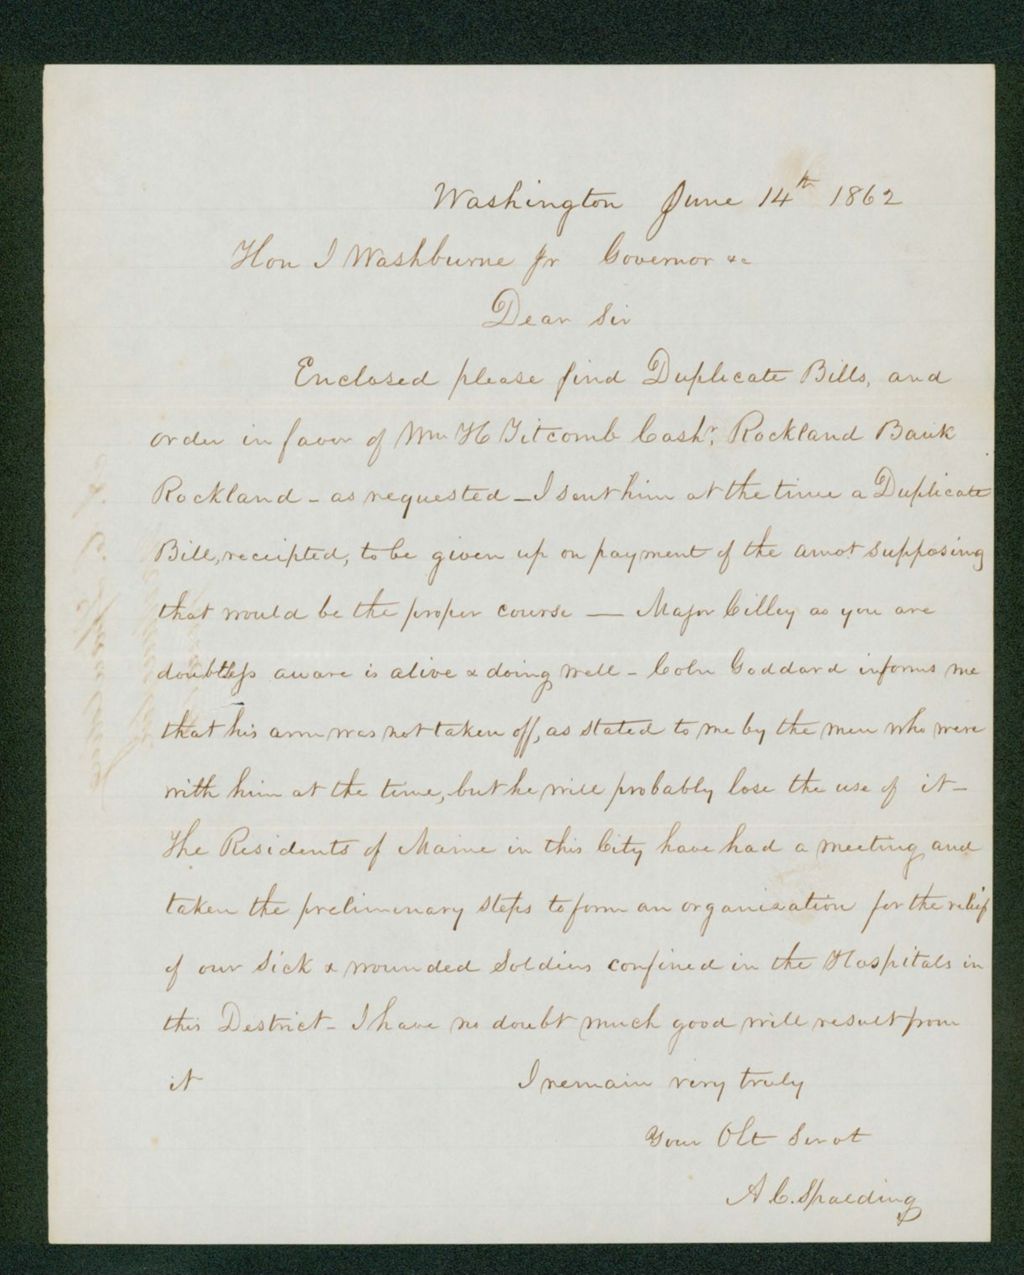 Washington June 14th 1862
Hon I Washburne Jr Governor &c
Dear Sir
Enclosed please find Duplicate Bills, and
order in favor of Wm H Titcomb Cashr, Rockland Bank
Rockland - as requested - I sent him at the time a Duplicate
Bill, receipted, to be given up on payment of the amot supposing
that would be the proper course — Major Cilley as you are
doubtless aware is alive & doing well - Coln Goddard informs me
that his arm was not taken off, as stated to me by the men who were
with him at the time, but he will probably lose the use of it -
The Residents of Maine in this City have had a meeting and
taken the preliminary steps to form an organization for the relief
of our Sick & wounded Soldiers confined in the Hospitals in
this District - I have no doubt much good will result from
it I remain very truly
Your Obt Servt
A C. Spalding